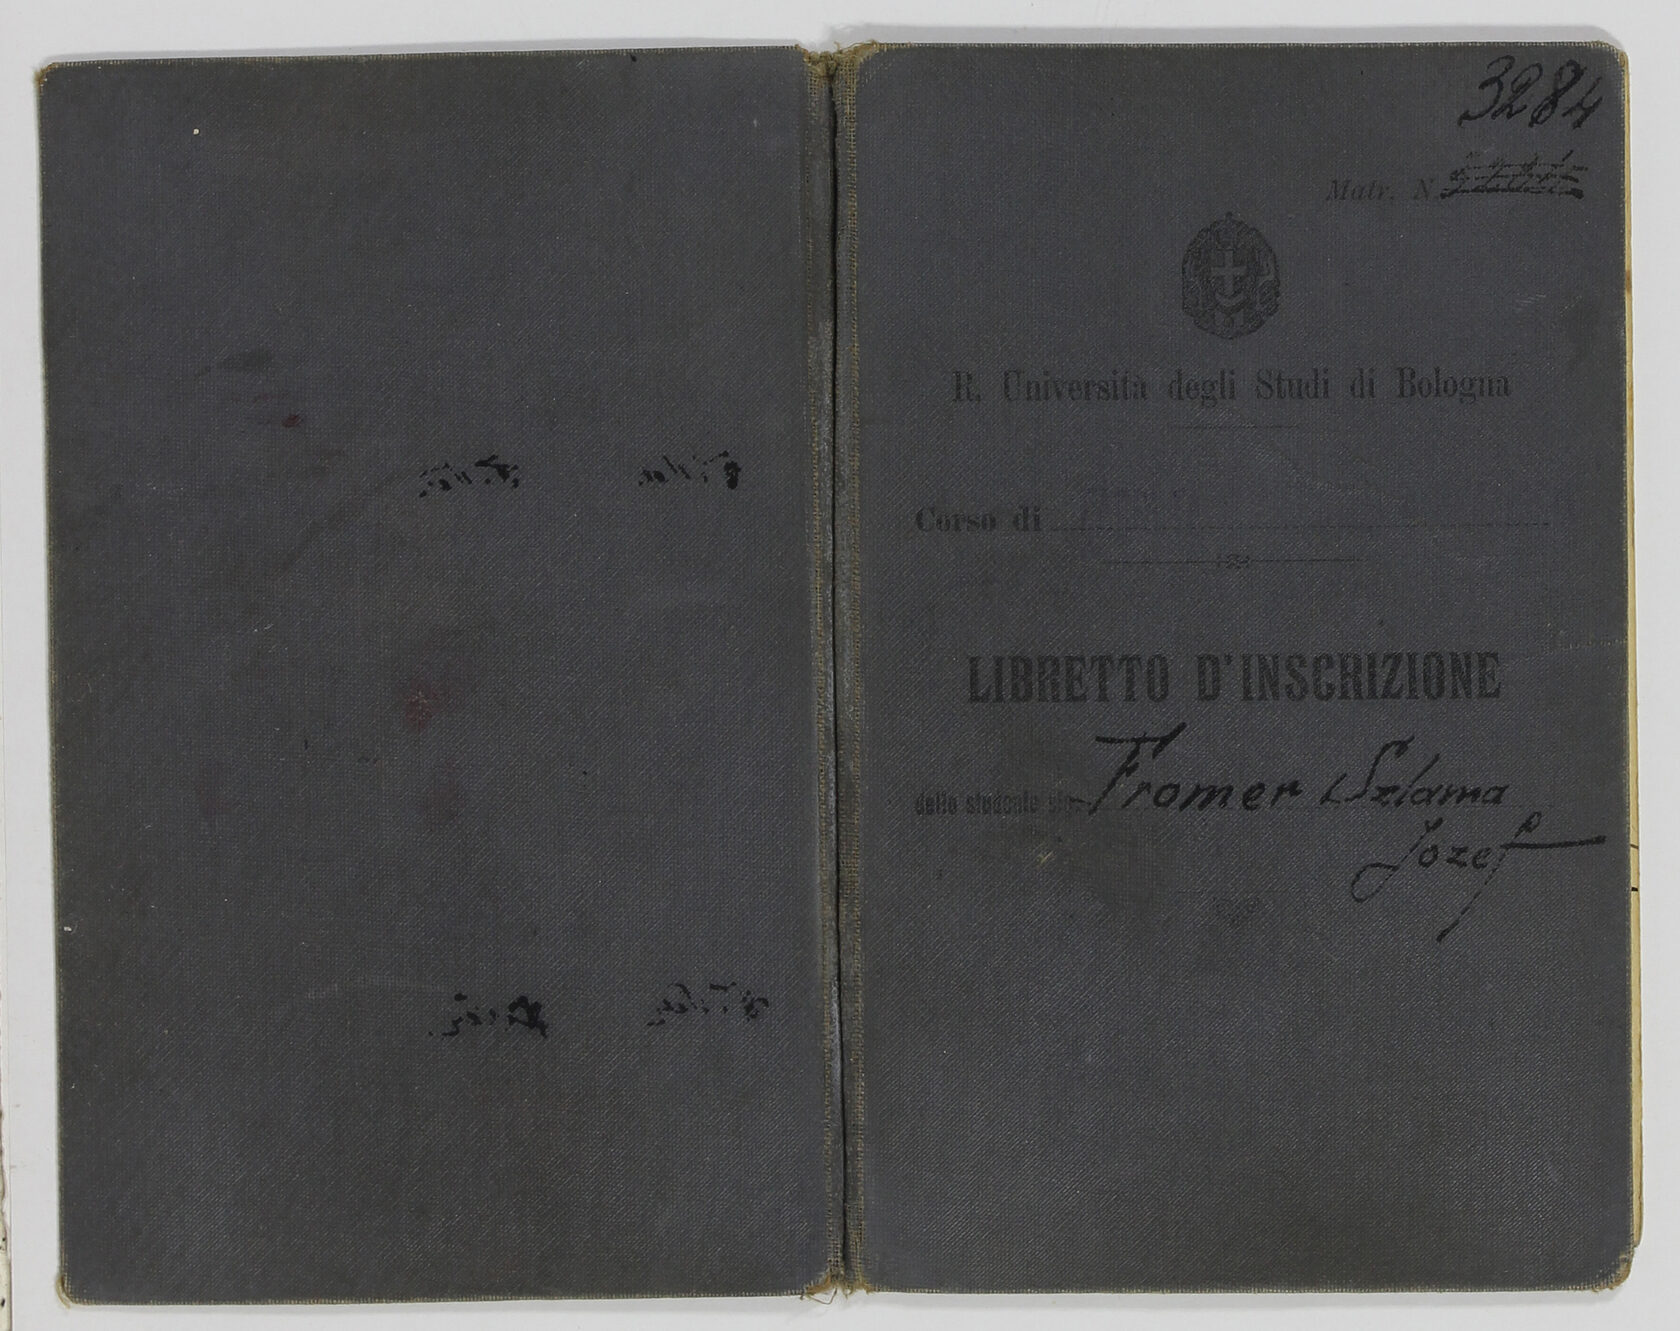 3284
Matr. N.
R. Università degli Studi di Bologna
Corso di
LIBRETTO D'INSCRIZIONE
dello studente sig. Fromer Szlama
Jozef